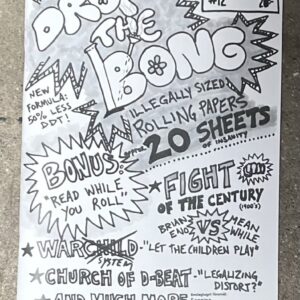 #12
DROP
THE
BONG
NEW
FORMULA:
50% LESS
DDT!
ILLEGALLY SIZED
ROLLING PAPERS
20 SHEETS
OF INSANITY
BONUS:
"READ WHILE
YOU ROLL"
★ FIGHT
OF THE CENTURY
(1900's)
BRIAN
ENO
VS
MEAN
WHILE
★ WARCHILD - "LET THE CHILDREN PLAY"
SYSTEM
★ CHURCH OF D-BEAT - "LEGALIZING
DISTORT?"
★ AND MUCH MORE